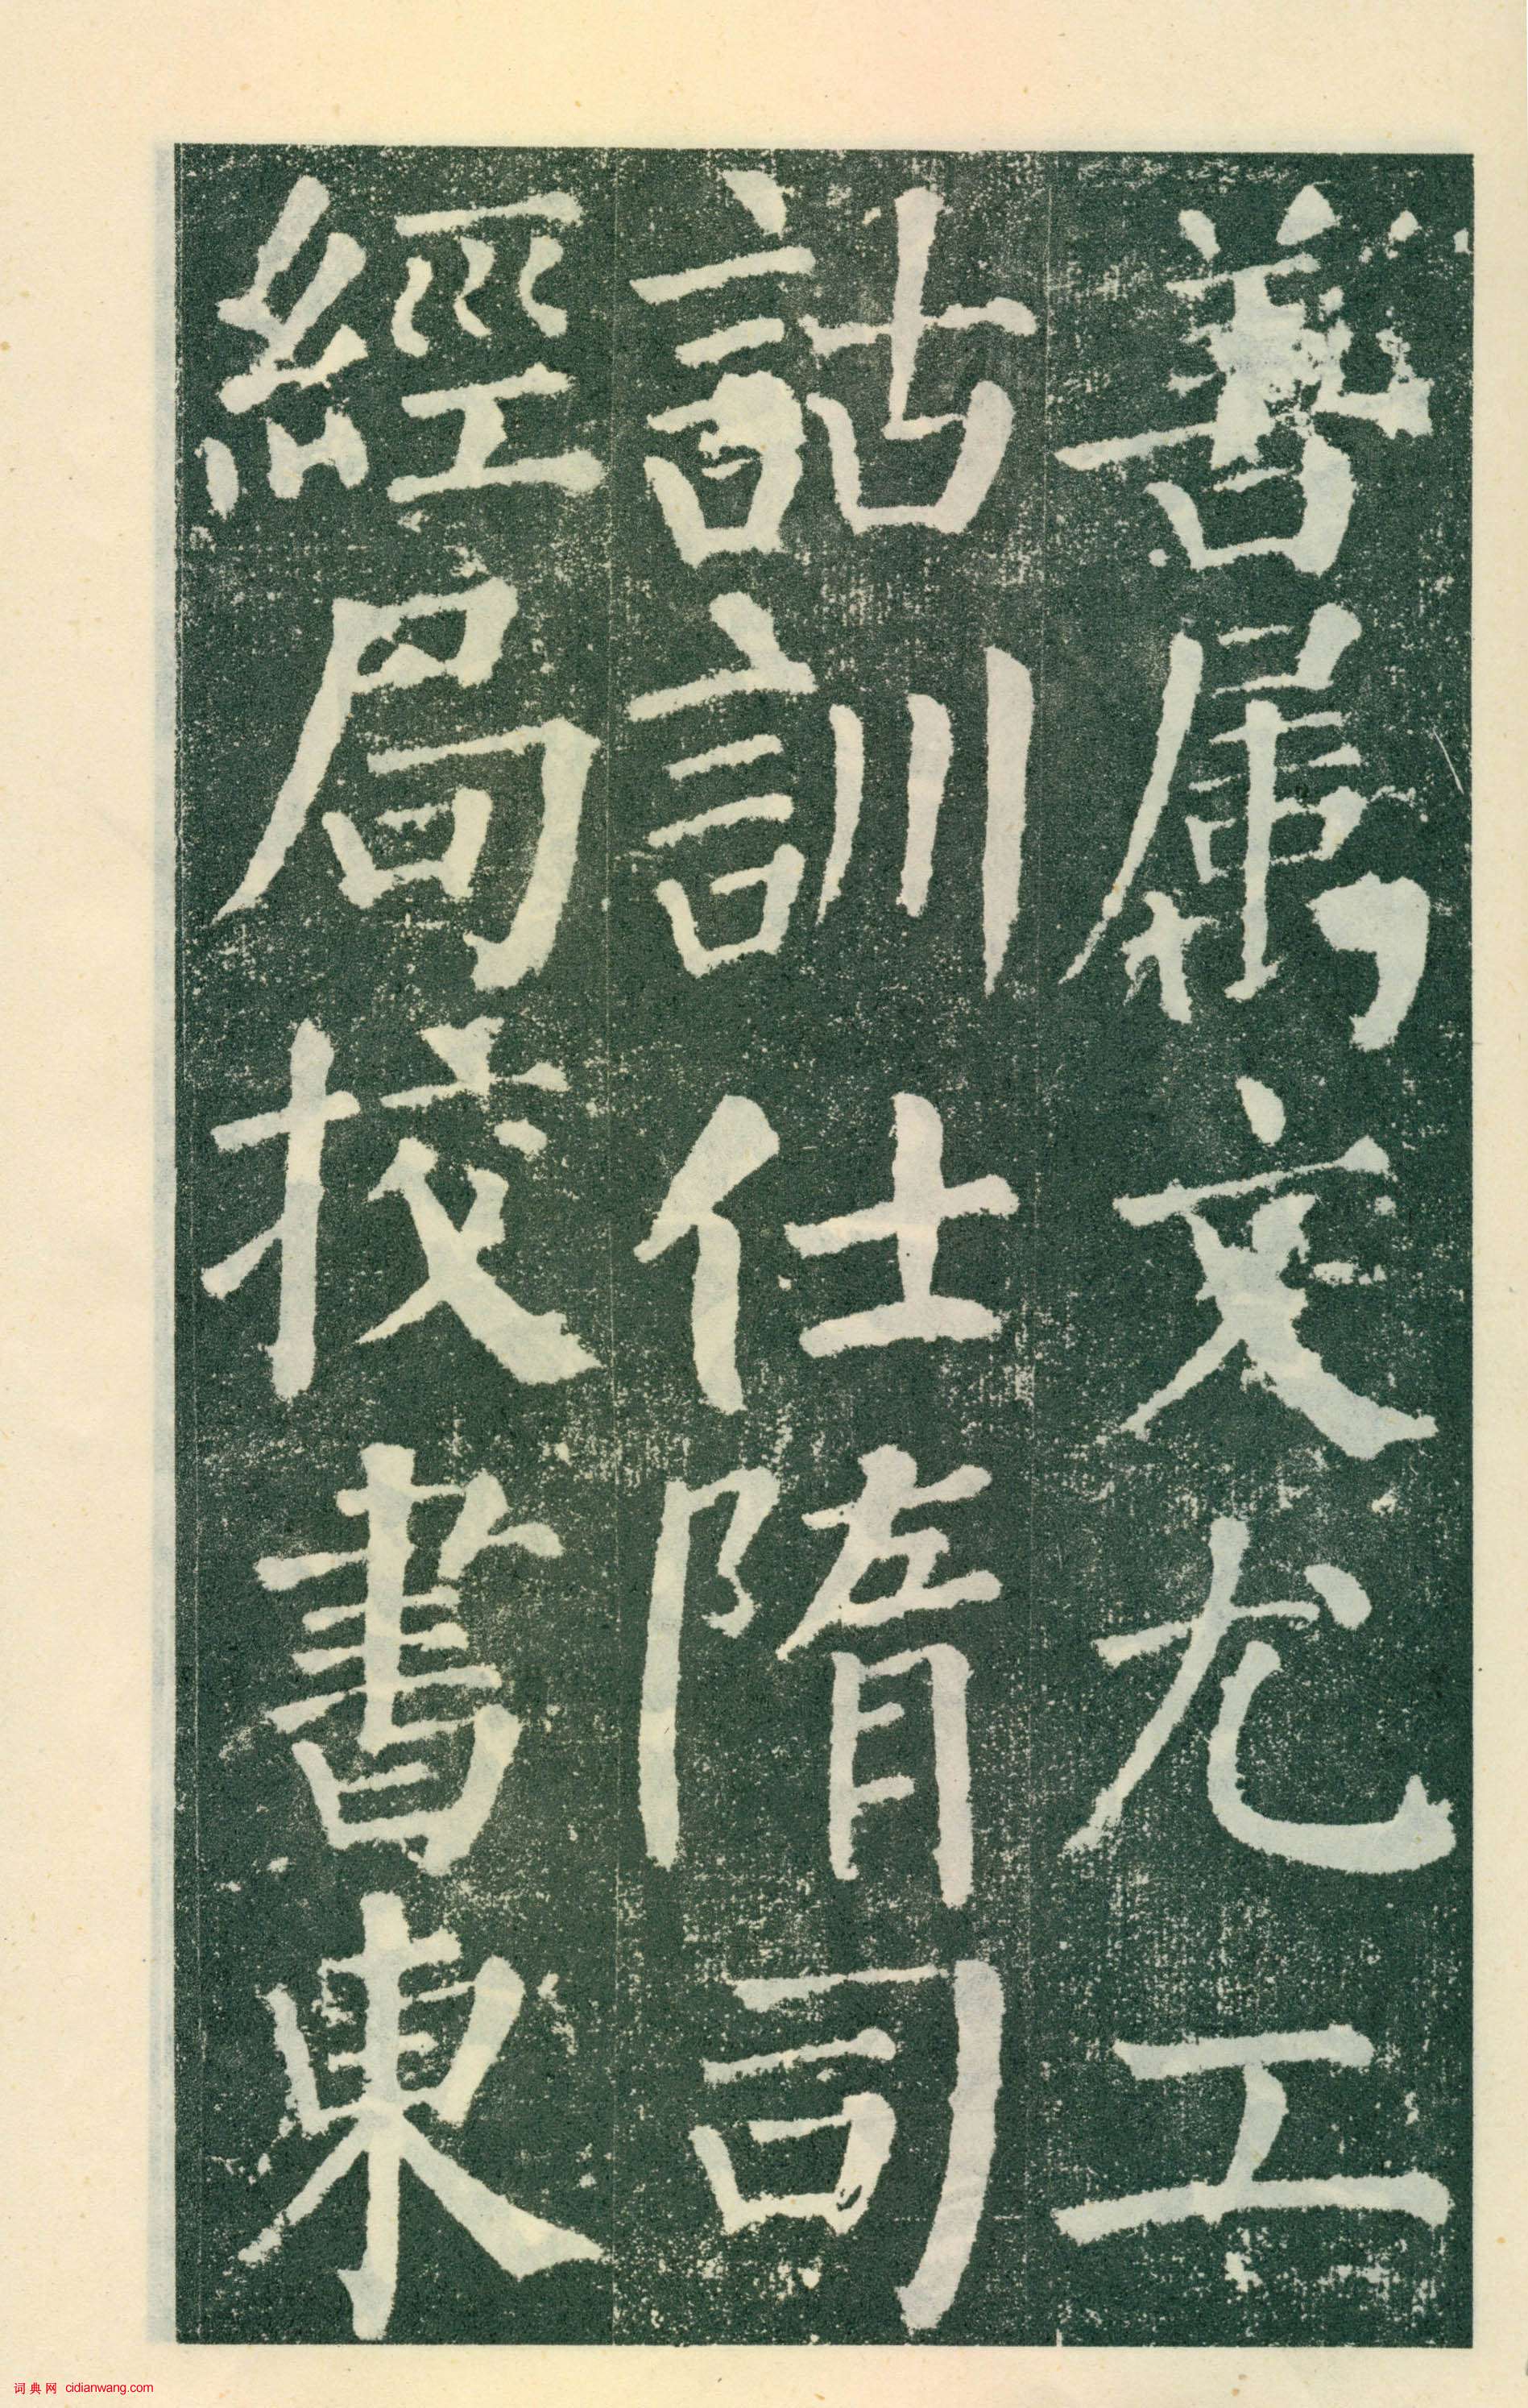 善属文尤工
詁訓仕隋司
經局挍書東
词典网 cidianwang.com